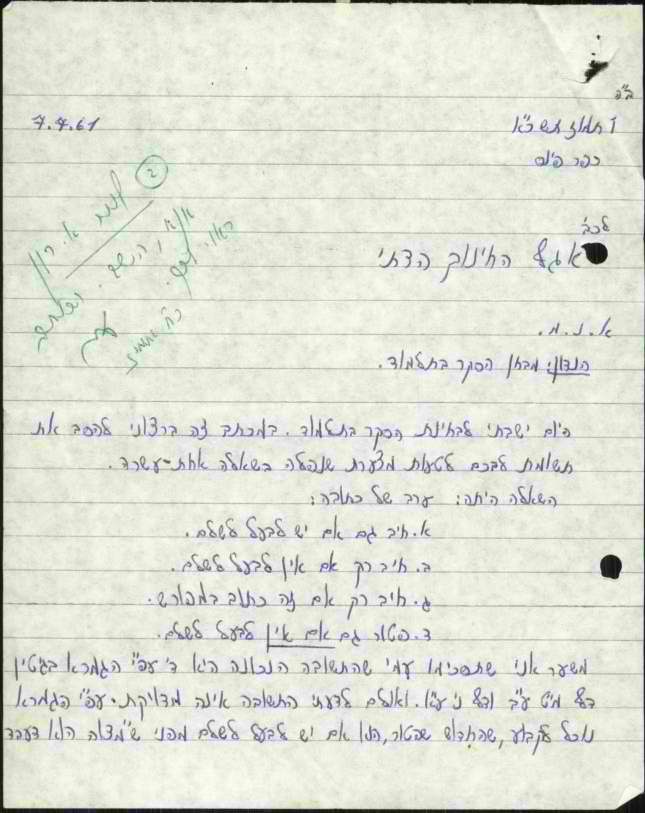 ב"ה
7.7.61
תמוז תשכ"א
כפר פינס
לכב'
אגף החינוך הדתי
א. נ. מ.
הנדון: מבחן הסקר בתלמוד.
היום ישבתי לבחינת הסקר בתלמוד. במכתב זה ברצוני להסב את
תשומת לבכם לטעות מצערת שנפלה בשאלה אחת-עשרה.
השאלה היתה: ערב של כתובה:
א. חיב גם אם יש לבעל לשלם.
ב. חיב רק אם אין לבעל לשלם.
ג. חיב רק אם זה כתוב במפורש.
ד. פטור גם אם אין לבעל לשלם.
משער אני שתסכימו עמי שהתשובה הנכונה היא ד' עפ"י הגמרא בגיטין
דף מ"ט ע"ב ודף נ' ע"א. ואולם לדעתי התשובה אינה מדויקת. עפ"י הגמרא
נוכל לקבוע, שהחדוש שפטור, הוא אם יש לבעל לשלם מפני ש"מצוה הוא דעבד